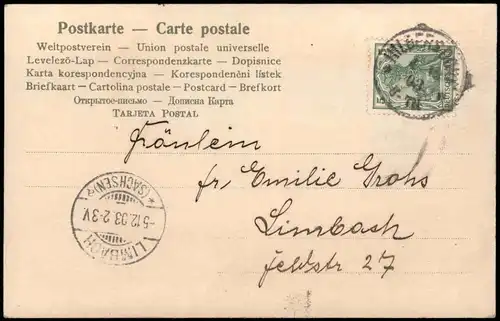 Postkarte — Carte postale
Weltpostverein — Union postale universelle
Levelező-Lap — Correspondenzkarte — Dopisnice
Karta korespondencyjna — Korespondenčni listek
Briefkaart — Cartolina postale — Postcard — Brefkort
Открытое-письмо — Дописна Карта
TARJETA POSTAL
Fräulein
fr. Emilie Grohs
Limbach
Feldstr 27
LIMBACH
(SACHSEN)
-5.12.03 2-3V
5